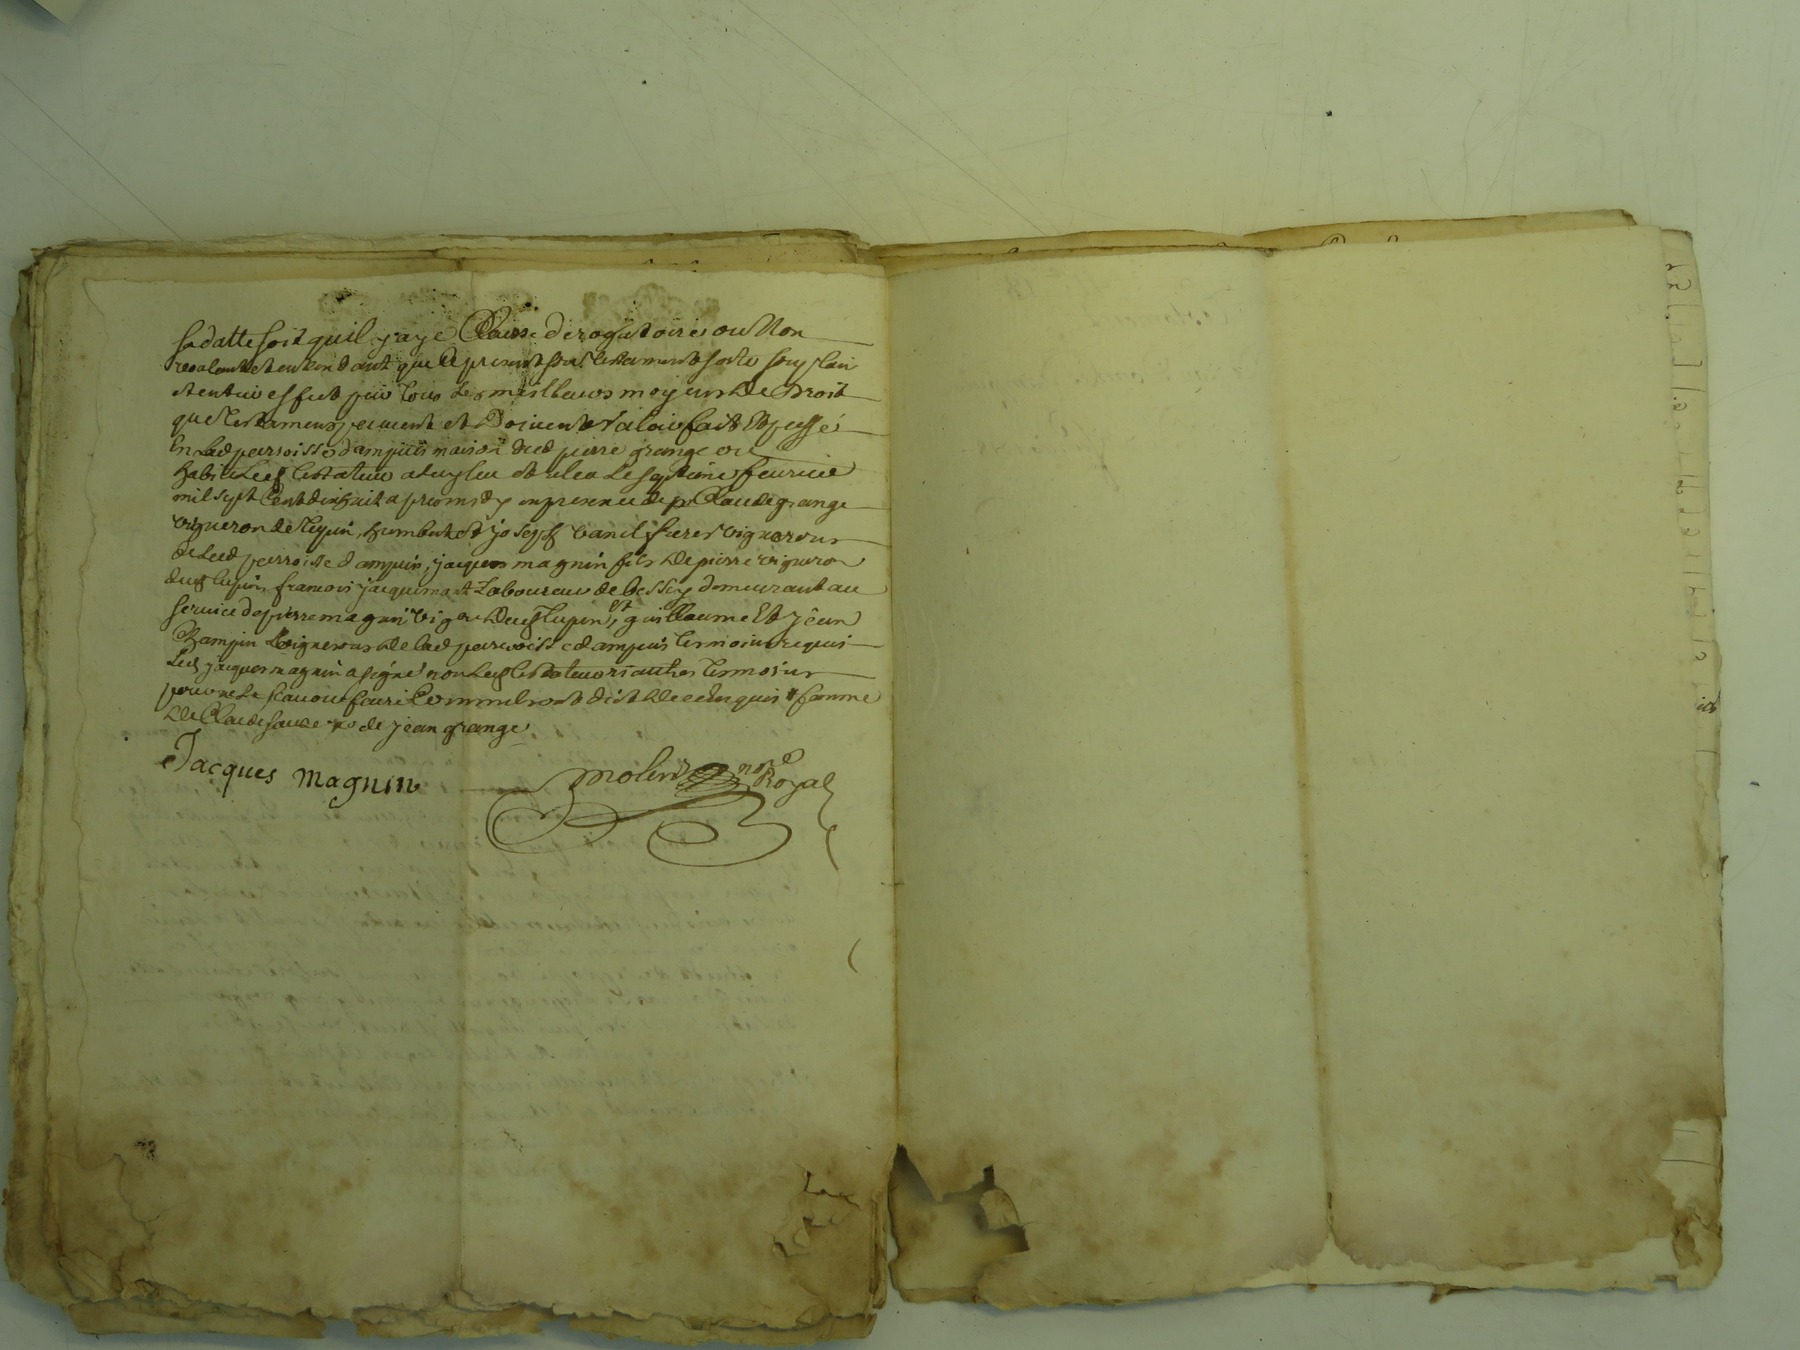 sa datte soit quil y aye Clause derogatoire ou Non
voulant et entendant que le present son testament sorte son plain
et entier effect par tous les meilleurs moyens de Droit
que testamens peuvent et Doivent Valoir fait Et passé
En lad parroisse dampuis maison dud pierre grange ou
habite led testateur le septieme feurier
mil sept Cent dixhuit apres midy en presence de Claude grange
vigneron de Tupin, humbert et joseph vanel freres vignerons
de lad parroisse dampuis, jacques magnin fils de pierre vigneron
dud tupin, francois jacquemont Laboureur de bessey demeurant au
service de pierre magnin vigneron dud Tupin, et guillaume Et jean
Zampin vignerons de lad parroisse dampuis tesmoins requis
Led jacques magnin a signé non led testateur ni autres tesmoins
pour ne le scavoir faire Comme ils ont dit de ce enquis femme
de Claude de jean grange
Jacques magnin
nore Royal